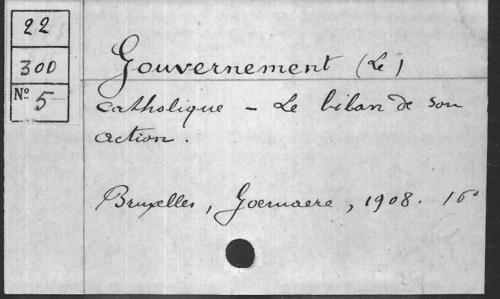 22
300
N° 5
Gouvernement (Le)
catholique - Le bilan de son
action.
Bruxelles, Goemaere, 1908. 16°